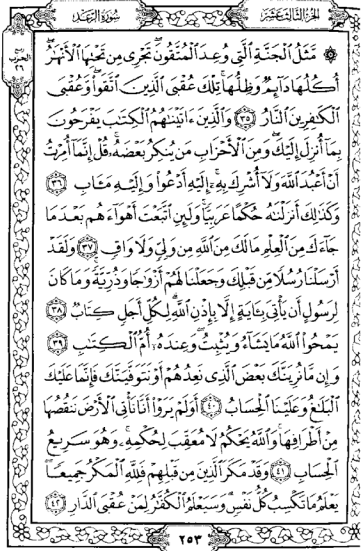 الجزء الثالث عشر
سورة الرعد
۞ مَّثَلُ الْجَنَّةِ الَّتِي وُعِدَ الْمُتَّقُونَ تَجْرِي مِن تَحْتِهَا الْأَنْهَٰرُ
أُكُلُهَا دَآئِمٌ وَظِلُّهَا تِلْكَ عُقْبَى الَّذِينَ اتَّقَوا وَّعُقْبَى
الْكَٰفِرِينَ النَّارُ ٣٥ وَالَّذِينَ ءَاتَيْنَٰهُمُ الْكِتَٰبَ يَفْرَحُونَ
بِمَآ أُنزِلَ إِلَيْكَ وَمِنَ الْأَحْزَابِ مَن يُنكِرُ بَعْضَهُ قُلْ إِنَّمَآ أُمِرْتُ
أَنْ أَعْبُدَ اللَّهَ وَلَآ أُشْرِكَ بِهِ إِلَيْهِ أَدْعُوا وَإِلَيْهِ مَـَٔابِ ٣٦
وَكَذَٰلِكَ أَنزَلْنَٰهُ حُكْمًا عَرَبِيًّا وَلَئِنِ اتَّبَعْتَ أَهْوَآءَهُم بَعْدَمَا
جَآءَكَ مِنَ الْعِلْمِ مَا لَكَ مِنَ اللَّهِ مِن وَلِيٍّ وَلَا وَاقٍ ٣٧ وَلَقَدْ
أَرْسَلْنَا رُسُلًا مِّن قَبْلِكَ وَجَعَلْنَا لَهُمْ أَزْوَٰجًا وَذُرِّيَّةً وَمَا كَانَ
لِرَسُولٍ أَن يَأْتِيَ بِـَٔايَةٍ إِلَّا بِإِذْنِ اللَّهِ لِكُلِّ أَجَلٍ كِتَابٌ ٣٨
يَمْحُوا اللَّهُ مَا يَشَآءُ وَيُثْبِتُ وَعِندَهُ أُمُّ الْكِتَٰبِ ٣٩
وَإِن مَّا نُرِيَنَّكَ بَعْضَ الَّذِي نَعِدُهُمْ أَوْ نَتَوَفَّيَنَّكَ فَإِنَّمَا عَلَيْكَ
الْبَلَٰغُ وَعَلَيْنَا الْحِسَابُ ٤٠ أَوَلَمْ يَرَوْا أَنَّا نَأْتِي الْأَرْضَ نَنقُصُهَا
مِنْ أَطْرَافِهَا وَاللَّهُ يَحْكُمُ لَا مُعَقِّبَ لِحُكْمِهِ وَهُوَ سَرِيعُ
الْحِسَابِ ٤١ وَقَدْ مَكَرَ الَّذِينَ مِن قَبْلِهِمْ فَلِلَّهِ الْمَكْرُ جَمِيعًا
يَعْلَمُ مَا تَكْسِبُ كُلُّ نَفْسٍ وَسَيَعْلَمُ الْكُفَّٰرُ لِمَنْ عُقْبَى الدَّارِ ٤٢
٢٥٣